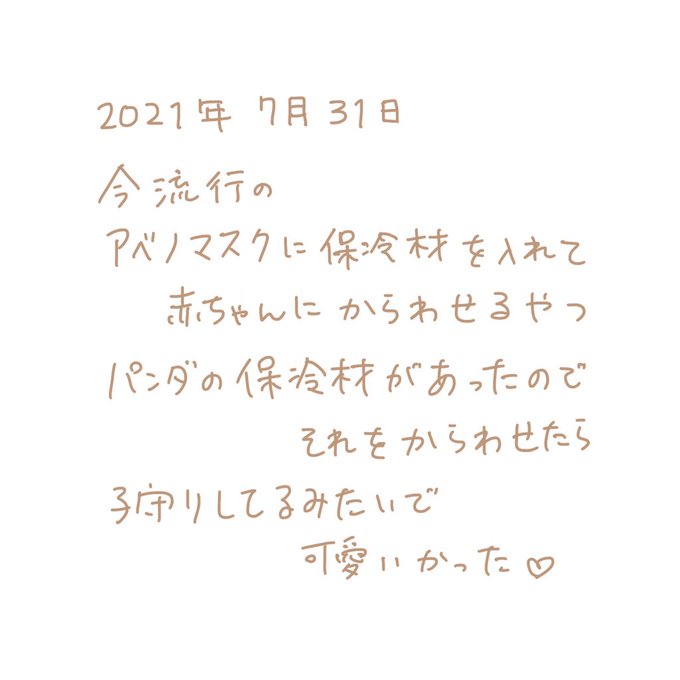 2021年 7月31日
今流行の
アベノマスクに保冷材を入れて
赤ちゃんにからわせるやつ
パンダの保冷材があったので
それをからわせたら
子守りしてるみたいで
可愛いかった♡